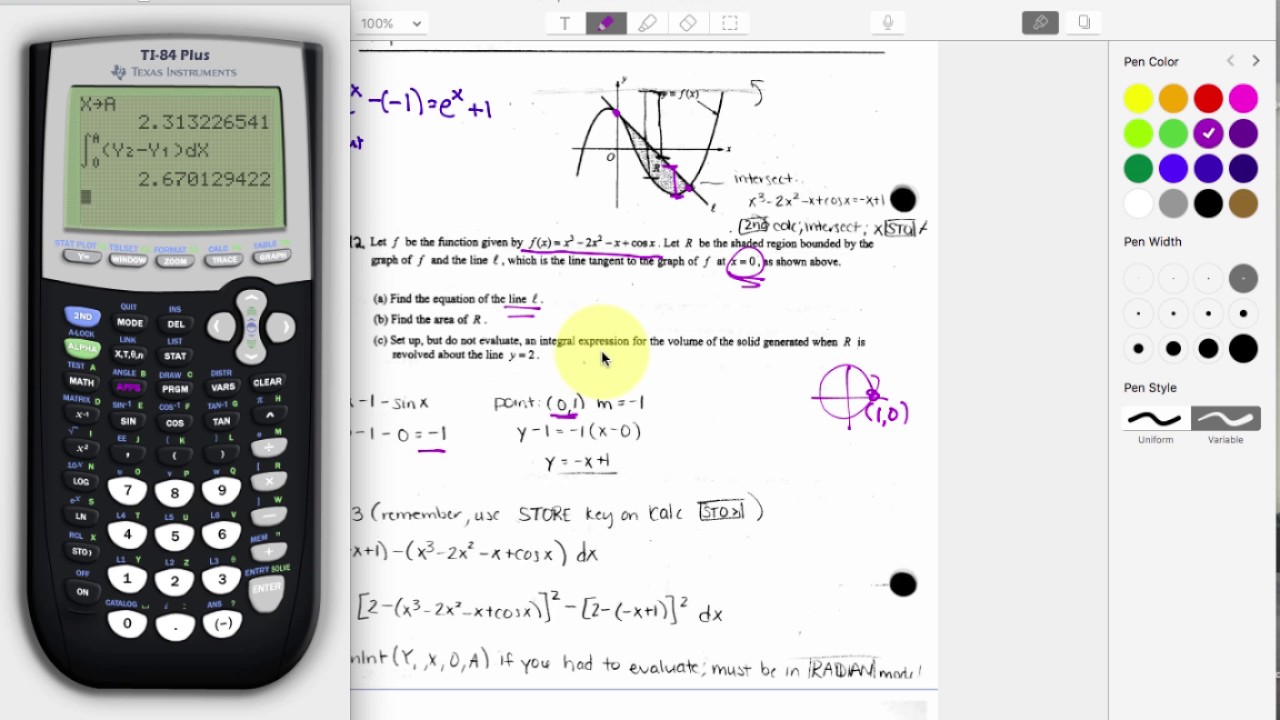 TI-84 Plus
TEXAS INSTRUMENTS
X→A
2.313226541
∫₀ᴬ(Y₂-Y₁)dX
2.670129422
STAT PLOT F1 TBLSET F2 FORMAT F3 CALC F4 TABLE F5
Y= WINDOW ZOOM TRACE GRAPH
QUIT INS
2ND MODE DEL
A-LOCK LINK LIST
ALPHA X,T,θ,n STAT
TEST A ANGLE B DRAW C DISTR
MATH APPS PRGM VARS CLEAR
MATRIX D SIN⁻¹ E COS⁻¹ F TAN⁻¹ G π H
x⁻¹ SIN COS TAN ^
√ I EE J { K } L e M
x² , ( ) ÷
10ˣ N u O v P w Q [ R
LOG 7 8 9 ×
eˣ S L4 T L5 U L6 V ] W
LN 4 5 6 −
RCL X L1 Y L2 Z L3 θ MEM "
STO› 1 2 3 +
OFF CATALOG ⎵ i : ANS ? ENTRY SOLVE
ON 0 . (−) ENTER
100%
T
x -(-1)=eˣ+1
at
y
= f(x)
O
x
R
ℓ
intersect
x³-2x²-x+cosx=-x+1
2nd calc; intersect; x STO
12. Let f be the function given by f(x) = x³ − 2x² − x + cos x. Let R be the shaded region bounded by the
graph of f and the line ℓ, which is the line tangent to the graph of f at x = 0, as shown above.
(a) Find the equation of the line ℓ.
(b) Find the area of R.
(c) Set up, but do not evaluate, an integral expression for the volume of the solid generated when R is
revolved about the line y = 2.
-1-sinx point: (0,1) m=-1
-1-0=-1 y-1=-1(x-0)
y=-x+1
(1,0)
3 (remember, use STORE key on calc STO› )
x+1)-(x³-2x²-x+cosx) dx
[2-(x³-2x²-x+cosx)]²-[2-(-x+1)]² dx
nInt(Y, X, 0, A) if you had to evaluate; must be in RADIAN mode!
Pen Color
Pen Width
Pen Style
Uniform Variable